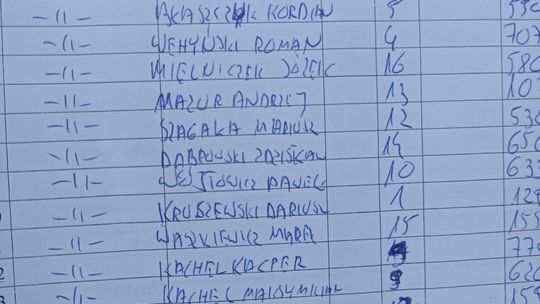 -11- BŁASZCZYK KORDIAN 5 530
-11- ROMAN 4 707
-11- MIELNICZEK JÓZEK 16 580
-11- MAZUR ANDRZEJ 13 10
-11- SZAGAŁA MARIUSZ 12 530
-11- DĄBROWSKI ZDZISŁAW 14 650
-11- 10 633
-11- KRUSZEWSKI DARIUSZ 1 129
-11- WASZKIEWICZ MAREK 15 155
-11- KACHEL KACPER 770
-11- KACHEL MAKSYMILIAN 9 620